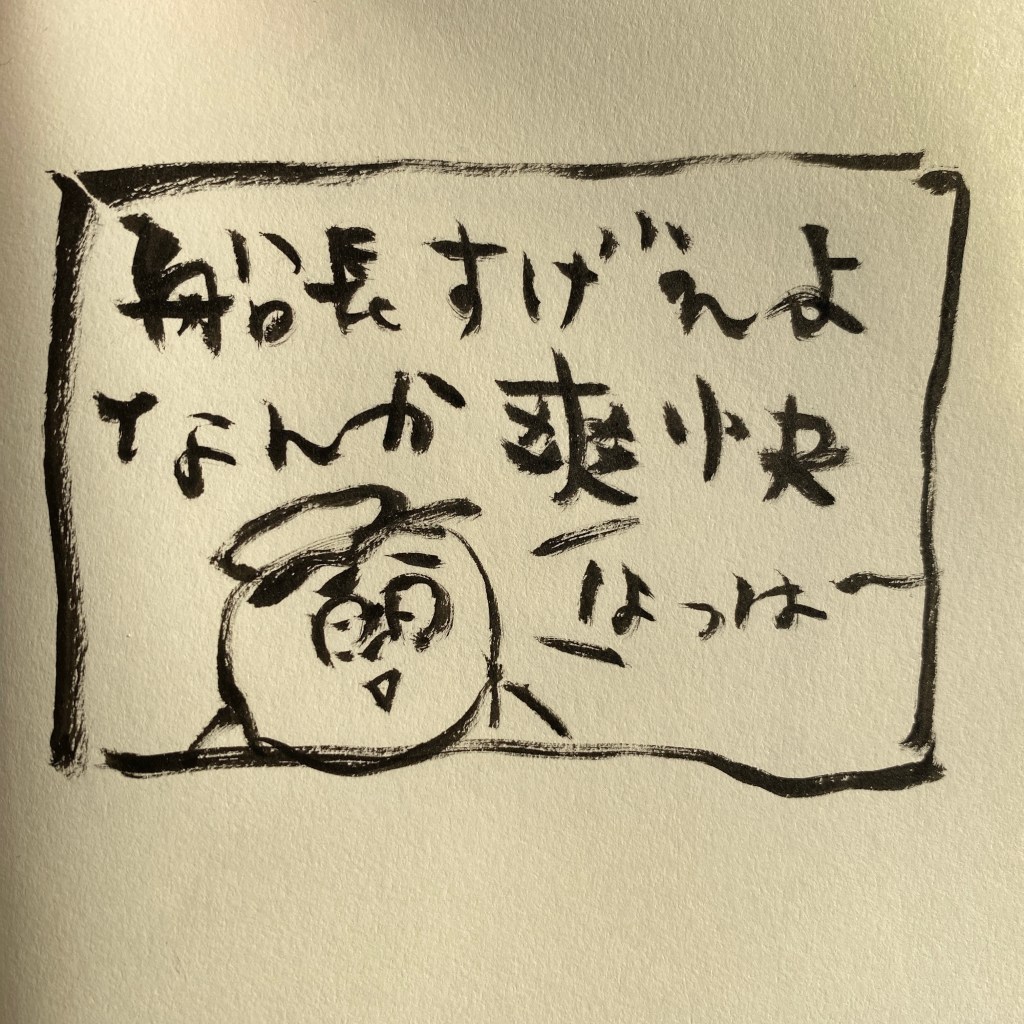 船長すげえよ
なんか爽快
なっはー